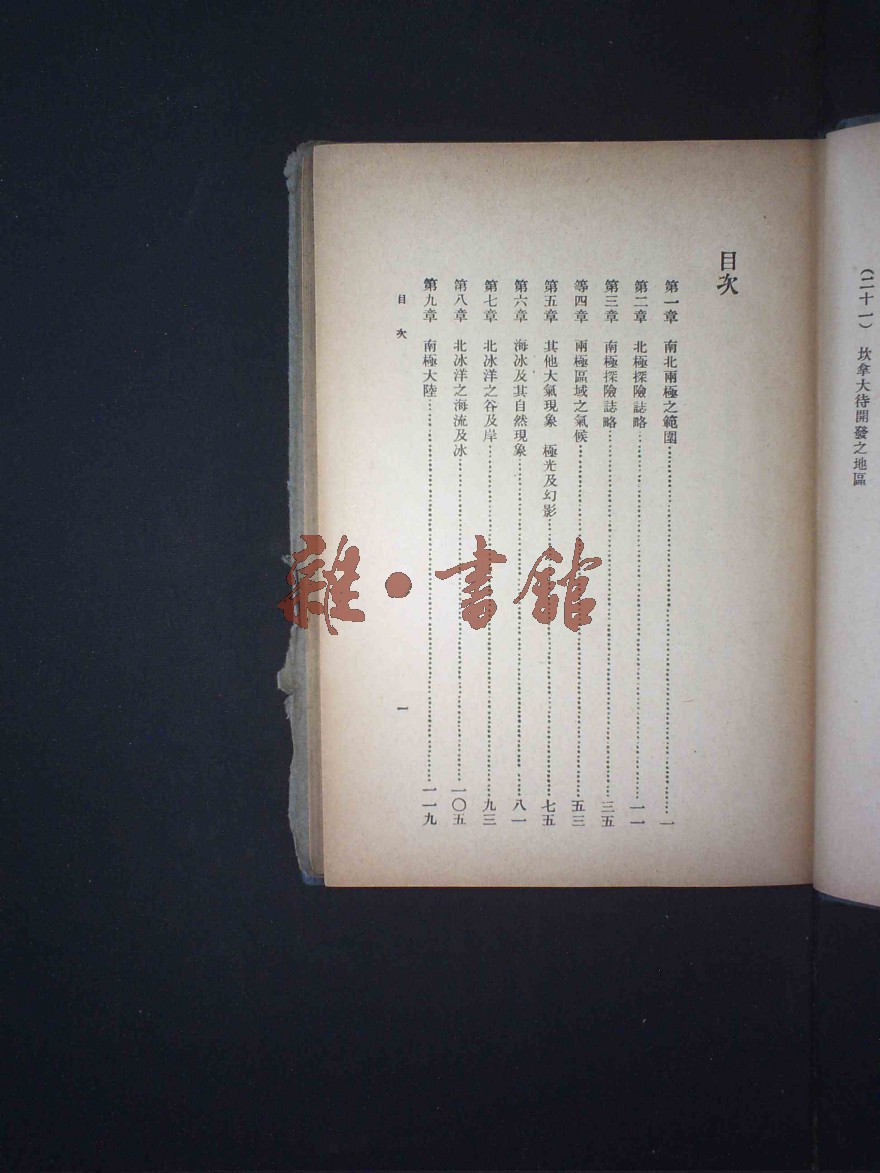 (二十一) 坎拿大待開發之地區
目次
第一章 南北兩極之範圍……一
第二章 北極探險誌略……一一
第三章 南極探險誌略……三五
等四章 兩極區域之氣候……五三
第五章 其他大氣現象 極光及幻影……七五
第六章 海冰及其自然現象……八一
第七章 北冰洋之谷及岸……九三
第八章 北冰洋之海流及冰……一〇五
第九章 南極大陸……一一九
目次 一
雜·書館